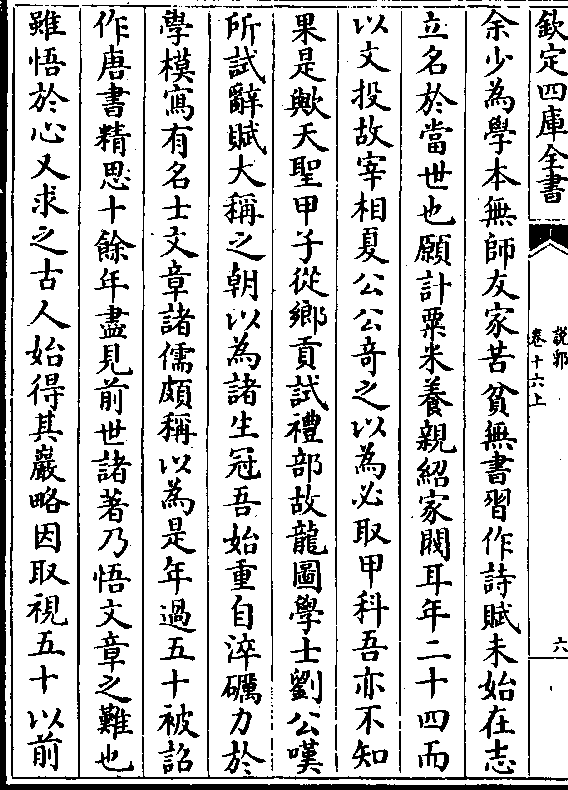 欽定四庫全書
說郛
卷十六上
六
余少為學本無師友家苦貧無書習作詩賦未始在志
立名於當世也願計粟米養親紹家閥耳年二十四而
以文投故宰相夏公公竒之以為必取甲科吾亦不知
果是歟天聖甲子從鄉貢試禮部故龍圖學士劉公嘆
所試辭賦大稱之朝以為諸生冠吾始重自淬礪力於
學模寫有名士文章諸儒頗稱以為是年過五十被詔
作唐書精思十餘年盡見前世諸著乃悟文章之難也
雖悟於心又求之古人始得其巖略因取視五十以前